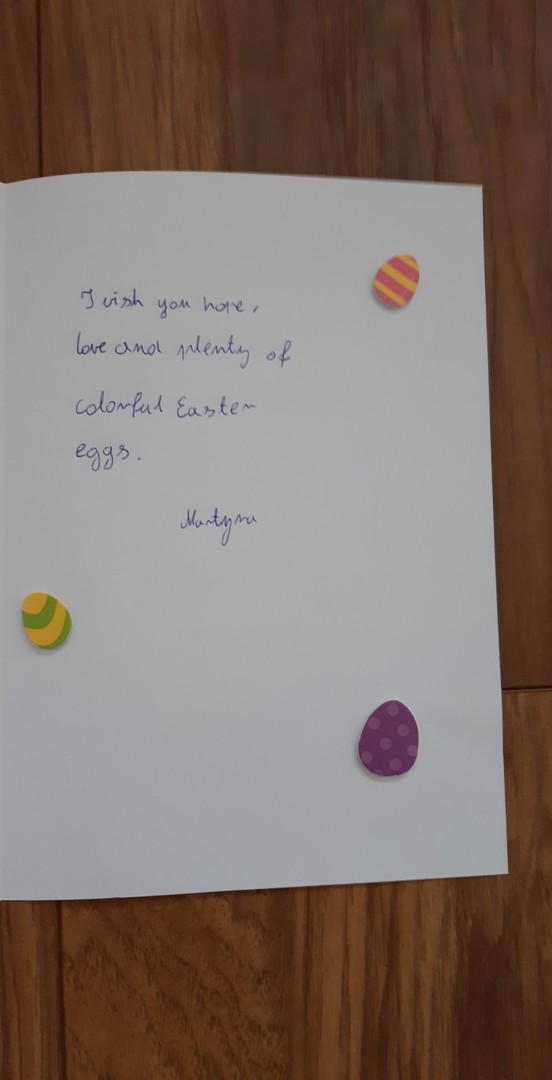 I wish you hope,
love and plenty of
colorful Easter
eggs.
Martyna